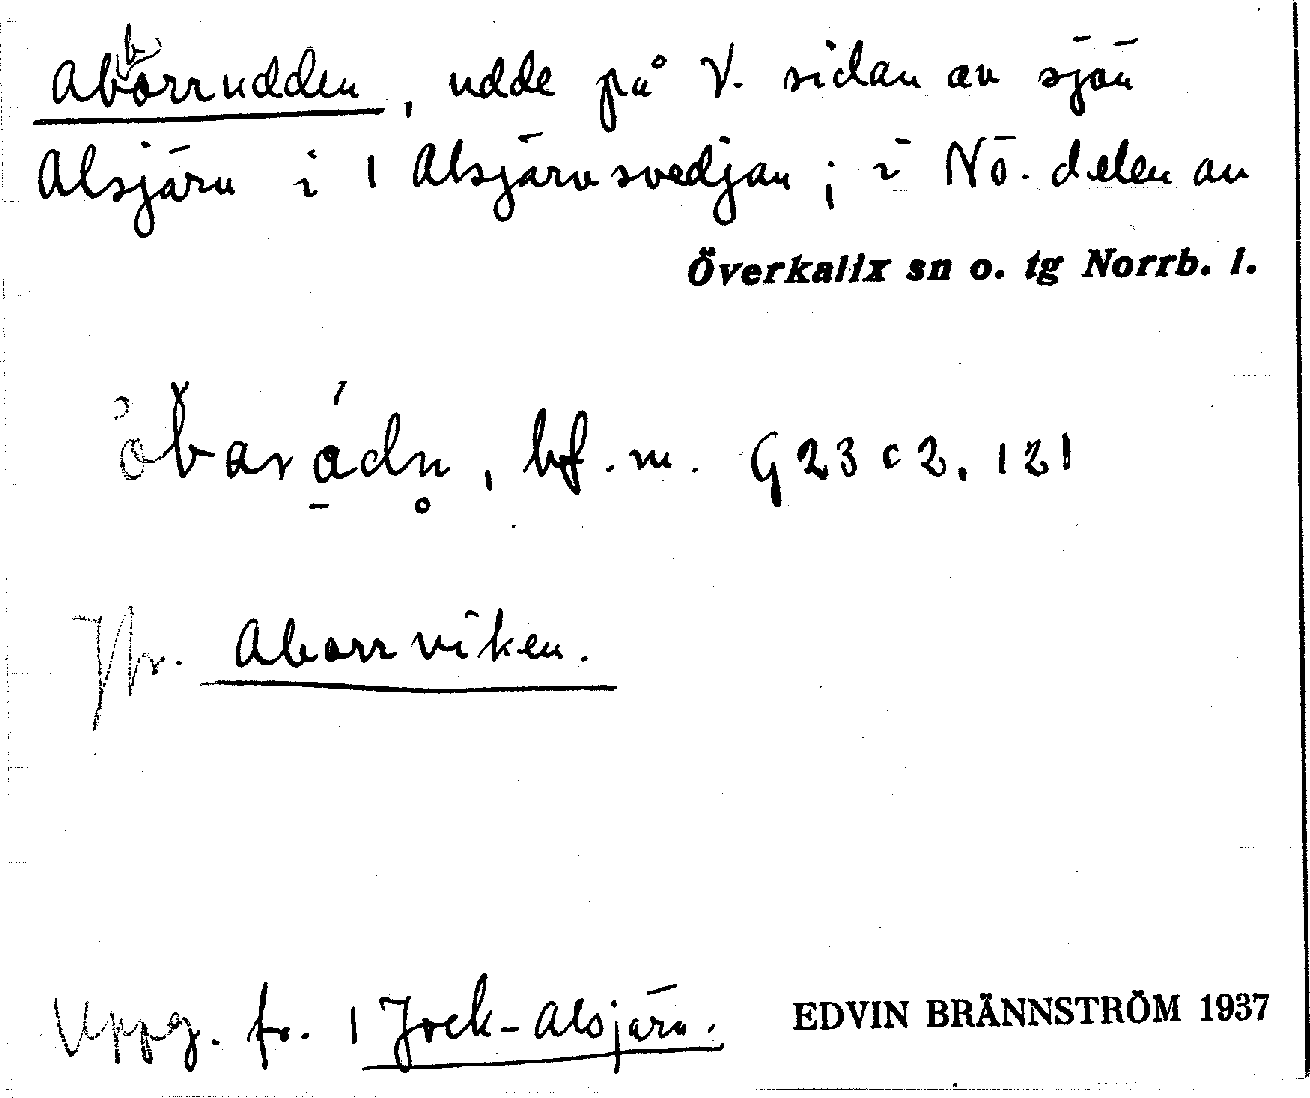 Abborrudden, udde på V. sidan av sjön
Alsjärv i 1 Alsjärvsvedjan; i NÖ. delen av
Överkalix sn o. tg Norrb. l.
bf. m. G 23 c 2. 121
Jfr. Aborrviken.
Uppg. fr. 1 Jock-Alsjärv.
EDVIN BRÄNNSTRÖM 1937